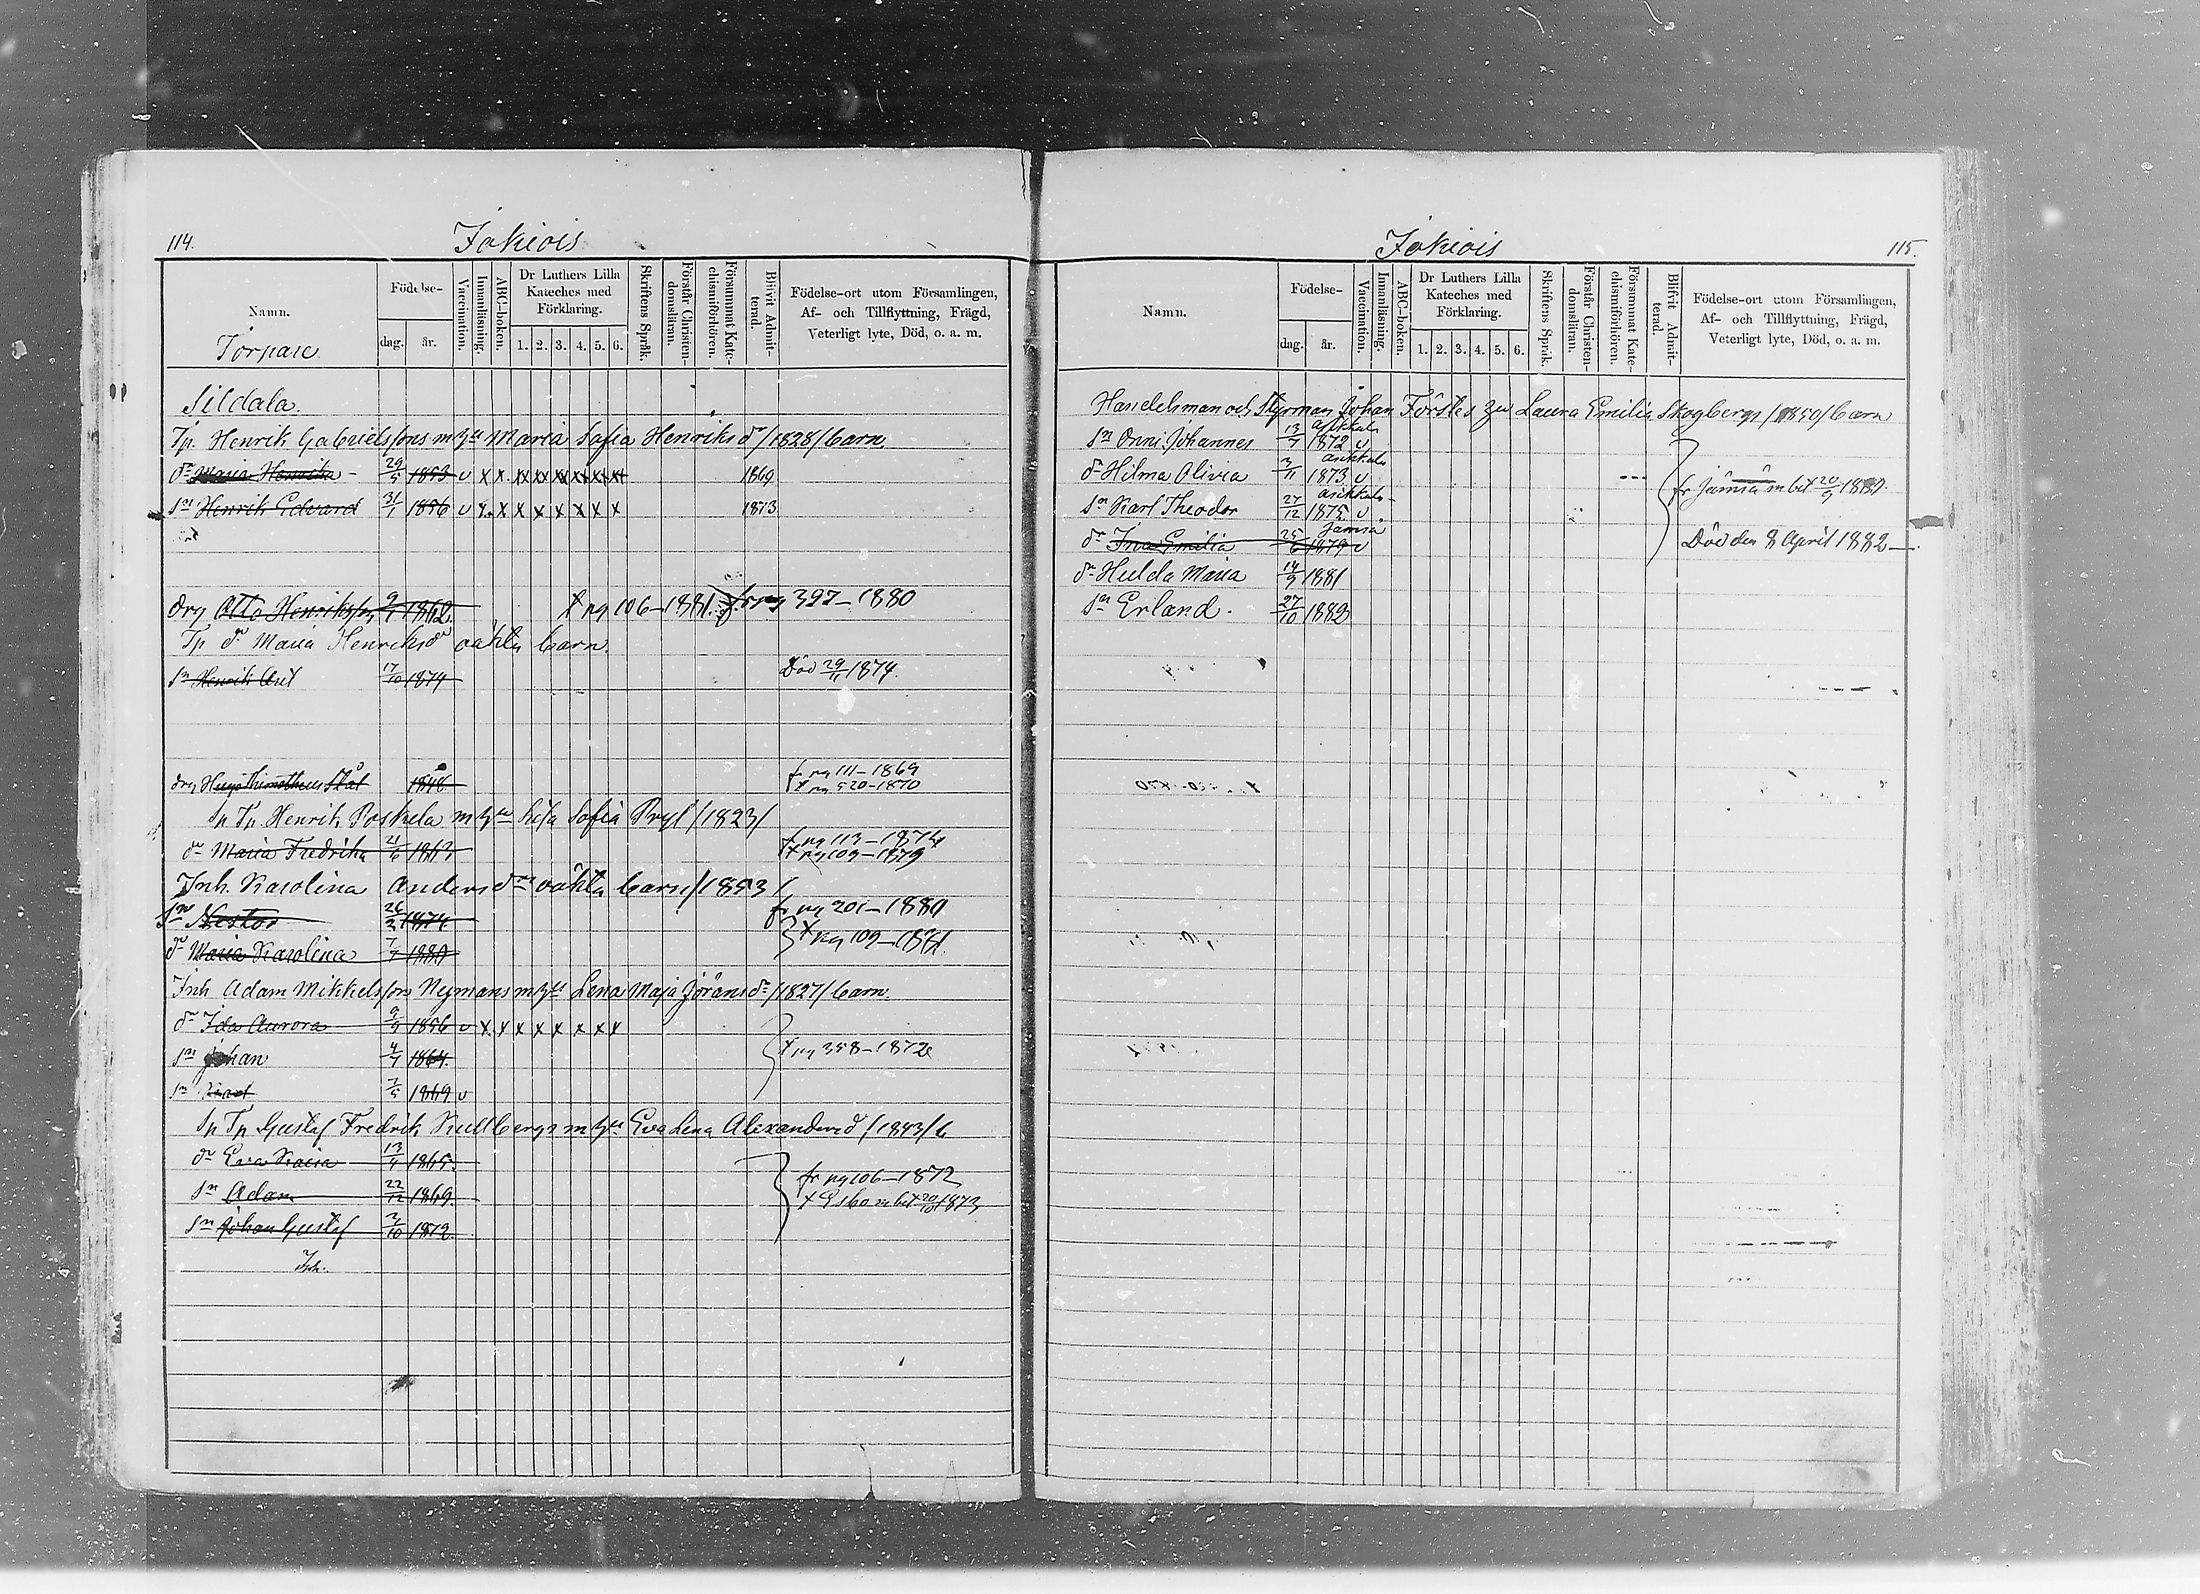 114.
Jokiois
Namn.
Torpare
Födelse-
dag.
år.
Vaccination.
Innanläsning.
ABC-boken.
Dr Luthers Lilla Kateches med Förklaring.
1. 2. 3. 4. 5. 6.
Skriftens Språk.
Förstår Christendomsläran.
Försummat Katechismiförhören.
Blifvit Admitterad.
Födelse-ort utom Församlingen,
Af- och Tillflyttning, Frägd,
Veterligt lyte, Död, o. a. m.
Sildala.
Tp. Henrik Gabrielssons m hu Maria Sofia Henriksdr /1828/ barn
dr Maria Henrika 29/5 1853 v x x x x x x x x 1869
sn Henrik Edvard 31/1 1856 v x x x x x x x x 1873
drg Otto Henriksson 9/1 1862 x pg 106-1881. fr pg 397-1880
Tp dr Maria Henriksdr oäkta barn.
sn Henrik Axel 17/10 1874 Död 29/11 1874.
drg Hugo Thimotheus Stål 1848 fr pg 111-1869
x pg 520-1870
Sp Tp Henrik Poskela m hu Lisa Sofia Pryl /1823/
dr Maria Fredrika 21/6 1863 fr pg 113-1874
x pg 109-1879
Inh. Karolina Andersdrs oäkta barn /1853/
sn Nestor 26/2 1874 fr pg 201-1880
dr Maria Karolina 7/7 1880 x pg 109-1881.
Inh Adam Mikkelssons Nymans m hu Lena Maja Jöransdr /1827/ barn.
dr Ida Aurora 9/9 1856 v x x x x x x x x
sn Johan 4/7 1864. x pg 358-1872
sn Karl 7/5 1869 v
Sp Tp Gustaf Fredrik Kullbergs m hu Eva Lena Alexandersd /1843/ b
dr Eva Kaisa 13/4 1865. fr pg 106-1872
sn Adam 22/12 1869. x Esbo m bet 20/10 1873
sn Johan Gustaf 2/10 1872.
Inh.
Jokiois
115.
Namn.
Födelse-
dag.
år.
Vaccination.
Innanläsning.
ABC-boken.
Dr Luthers Lilla Kateches med Förklaring.
1. 2. 3. 4. 5. 6.
Skriftens Språk.
Förstår Christendomsläran.
Försummat Katechismiförhören.
Blifvit Admitterad.
Födelse-ort utom Församlingen,
Af- och Tillflyttning, Frägd,
Veterligt lyte, Död, o. a. m.
Handelsman och Styrman Johan Förstes hu Laura Emilia Skogbergs /1850/ barn
sn Onni Johannes 13/7 1872 v Asikkala
dr Hilma Olivia 3/11 1873 v Asikkala fr Jämsä m bet 20/9 1880
sn Karl Theodor 27/12 1875 v Asikkala
dr Ina Emilia 25/6 1879 v Jämsä Död den 8 April 1882
dr Hulda Maria 14/9 1881
sn Erland. 27/10 1882